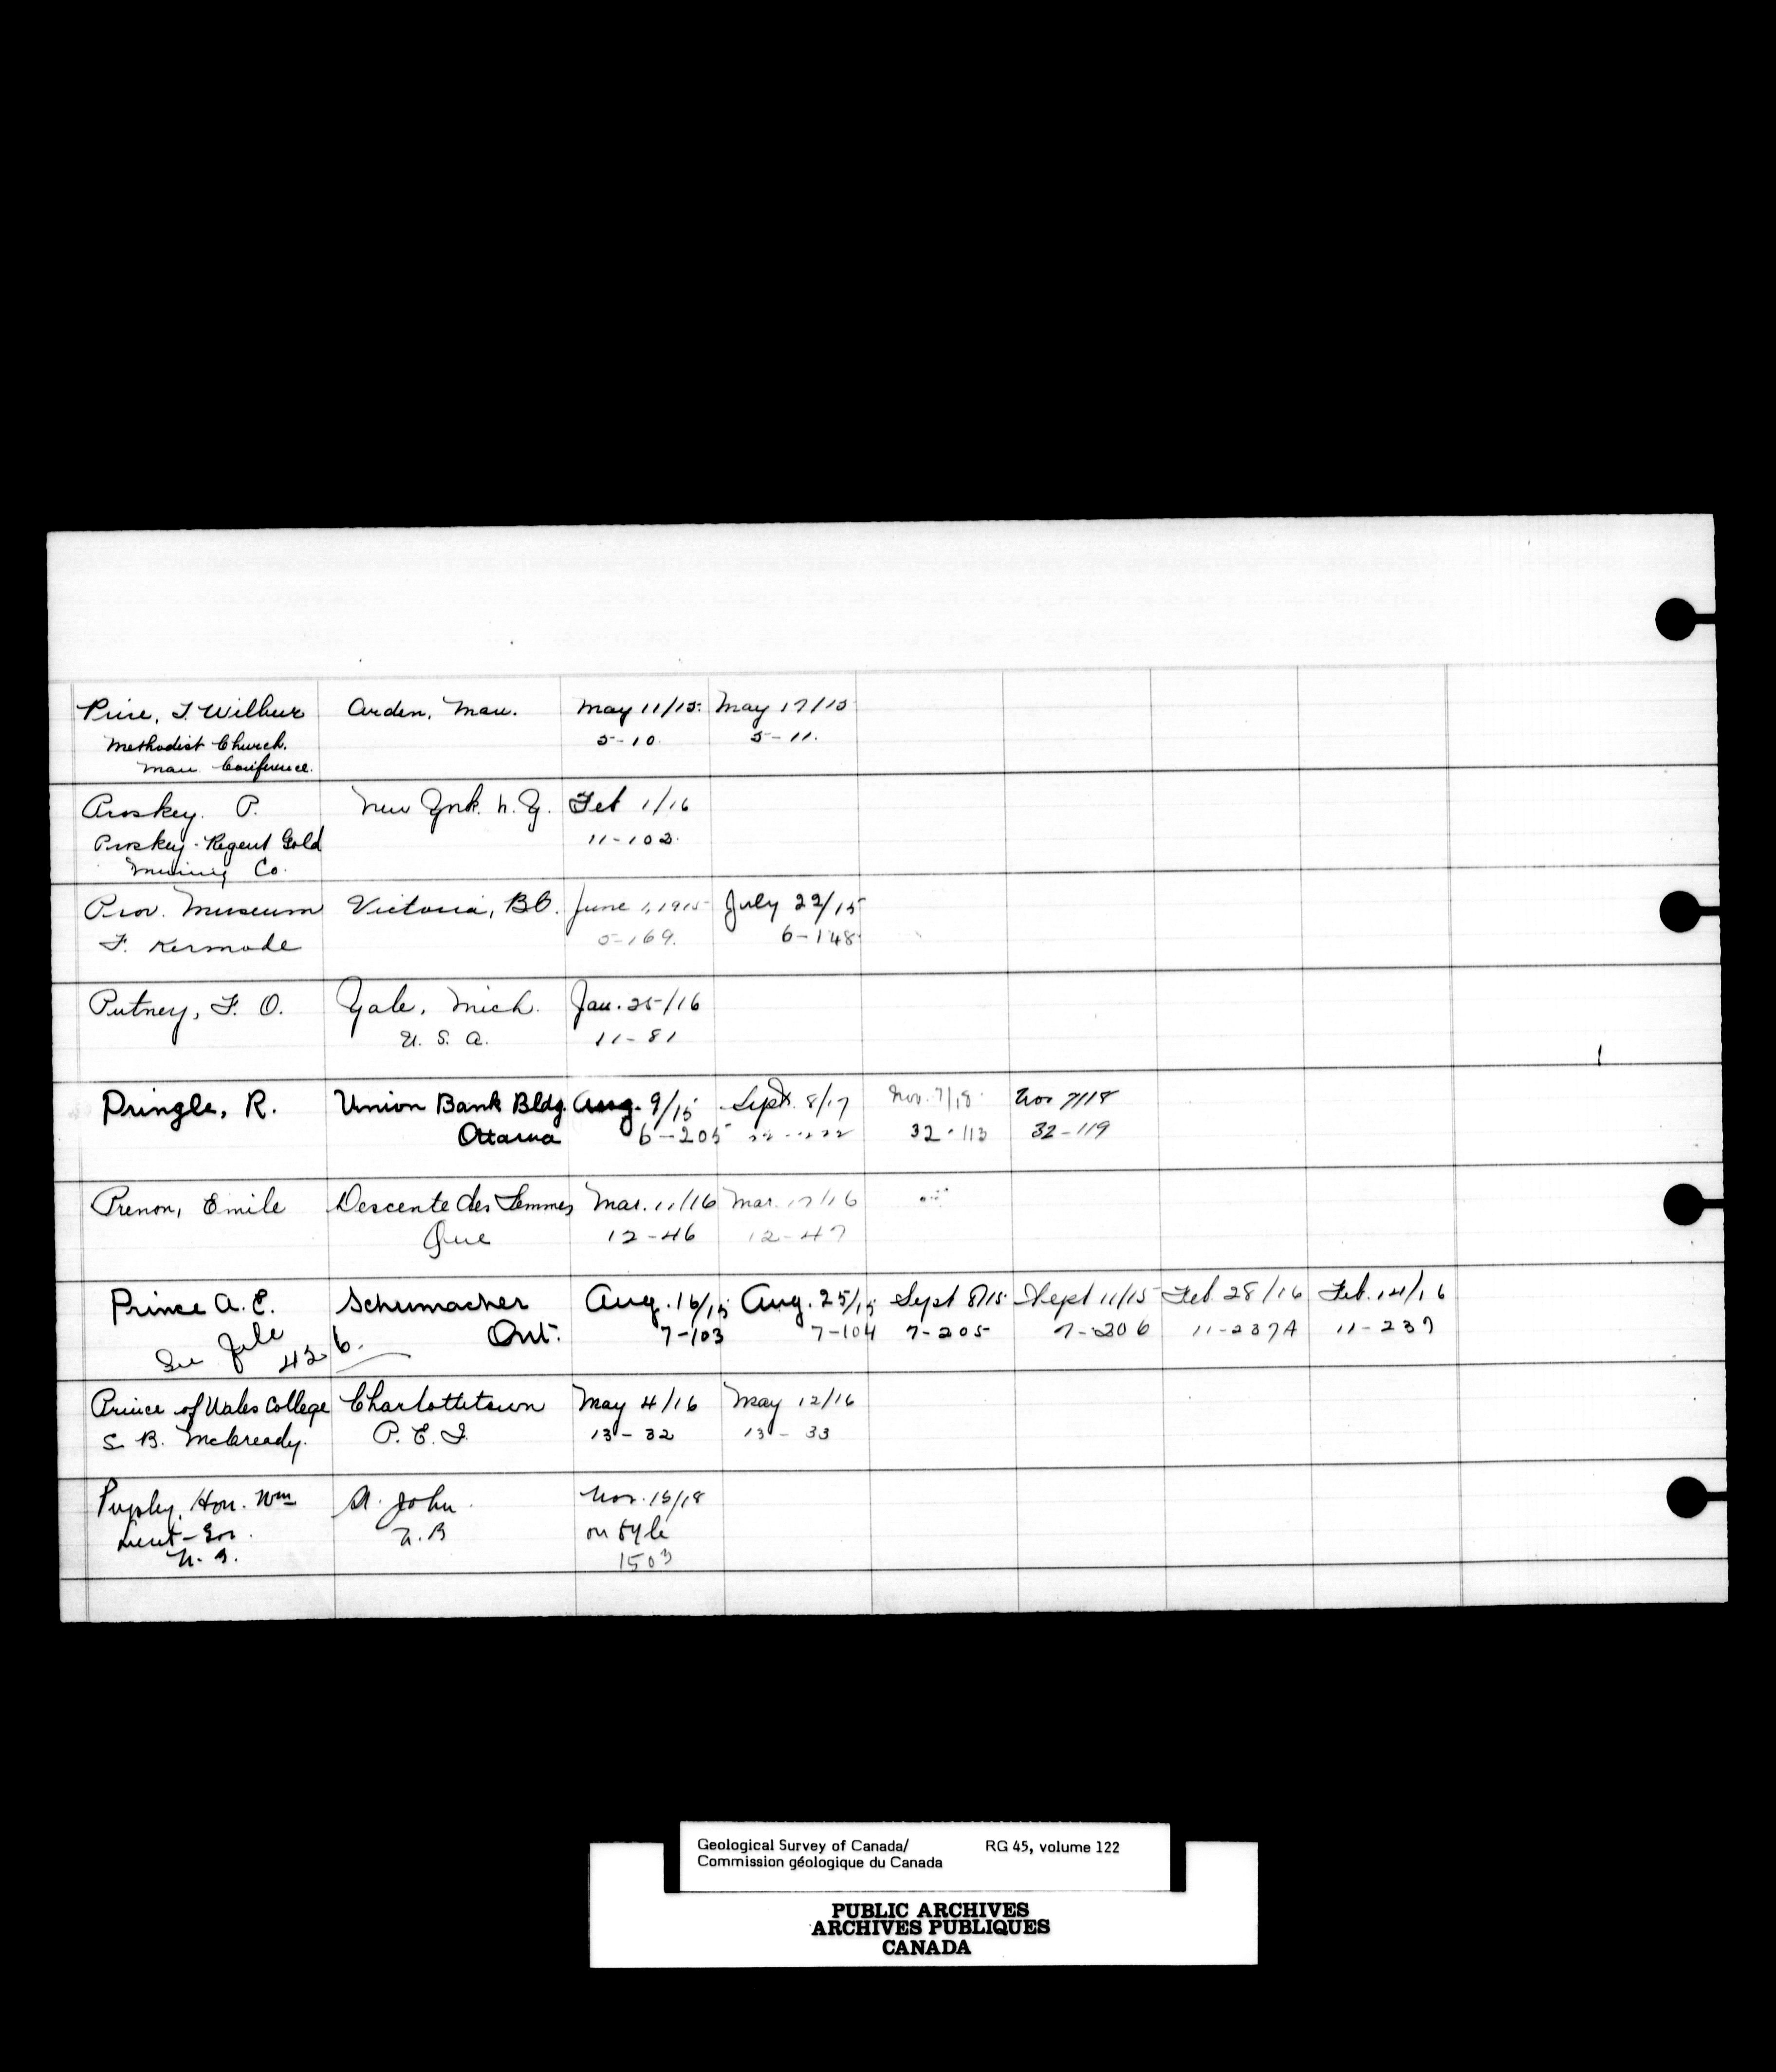 Price, T. Wilbur Arden, Man. May 11/15. May 17/15
Methodist Church. 5-10. 5-11.
Man. Conference.
Proskey. P. New York. N.Y. Feb 1/16
Proskey-Regent Gold 11-102.
Mining Co.
Prov. Museum Victoria, B.C. June 1, 1915 July 22/15
F. Kermode 5-169. 6-148
Putney, F. O. Yale, Mich. Jan. 25/16
U. S. A. 11-81
Pringle, R. Union Bank Bldg. Aug. 9/15 Sept. 8/17 Nov. 7/18 Nov 7/18
Ottawa 6-205 32-113 32-119
Prenon, Emile Descente des Femmes Mar. 11/16 Mar. 17/16
Que 12-46 12-47
Prince A. E. Schumacher Aug. 16/15 Aug. 25/15 Sept 8/15 Sept 11/15 Feb. 28/16 Feb. 14/16
See file 426. Ont. 7-103 7-104 7-205 7-206 11-237A 11-237
Prince of Wales College Charlottetown May 4/16 May 12/16
S. B. McCready. P. E. I. 13-32 13-33
Pugsley, Hon. Wm St. John. Nov. 15/18
Lieut-Gov. N.B on fyle
N. B. 1503
Geological Survey of Canada/ RG 45, volume 122
Commission géologique du Canada
PUBLIC ARCHIVES
ARCHIVES PUBLIQUES
CANADA